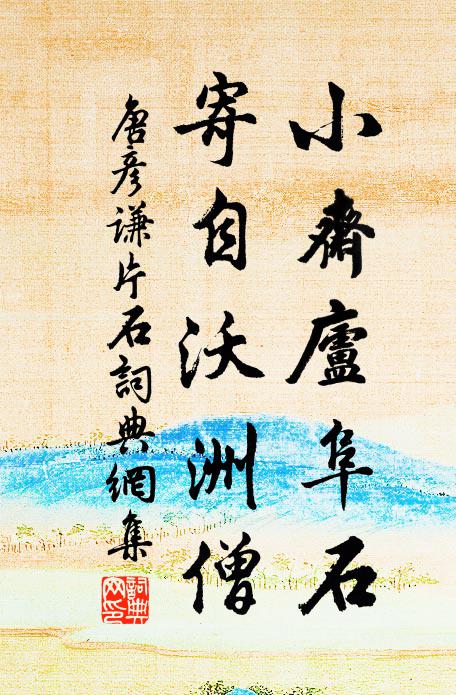 小齋廬阜石
寄自沃洲僧
唐彥謙片石詞典網集
詞典網印